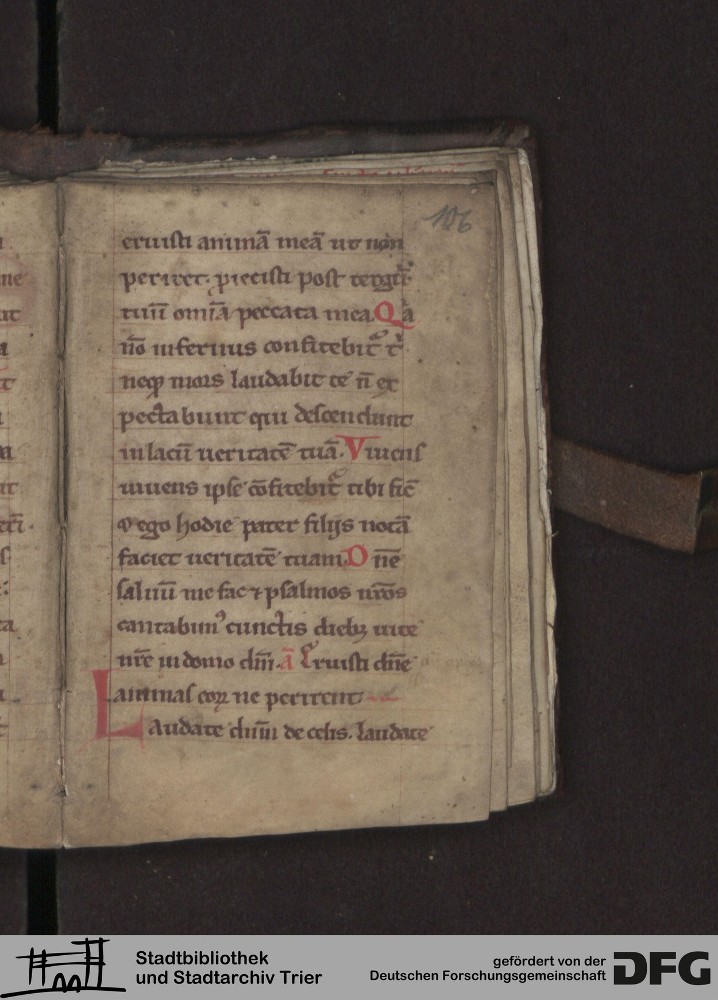 106
eruisti animā meā ut non
periret. ꝓiecisti post tergū
tuū omīa peccata mea. Qa
nō infernus confitebit᷑ t
neqꝫ mors laudabit te n̄ ex
pectabunt qui descendunt
in lacū ueritatē tuā. Viuens
uiuens ipse cōfitebit᷑ tibi sic̄
⁊ ego hodie pater filijs notā
faciet ueritatē tuam. Dn̄e
saluū me fac ⁊ psalmos nr̄os
cantabimꝰ cunctis diebꝫ uite
nr̄e in domo dn̄i. ā Eruisti dn̄e
animas eoꝝ ne perirent
Laudate dn̄m de celis. laudate
Stadtbibliothek
und Stadtarchiv Trier
gefördert von der
Deutschen Forschungsgemeinschaft
DFG